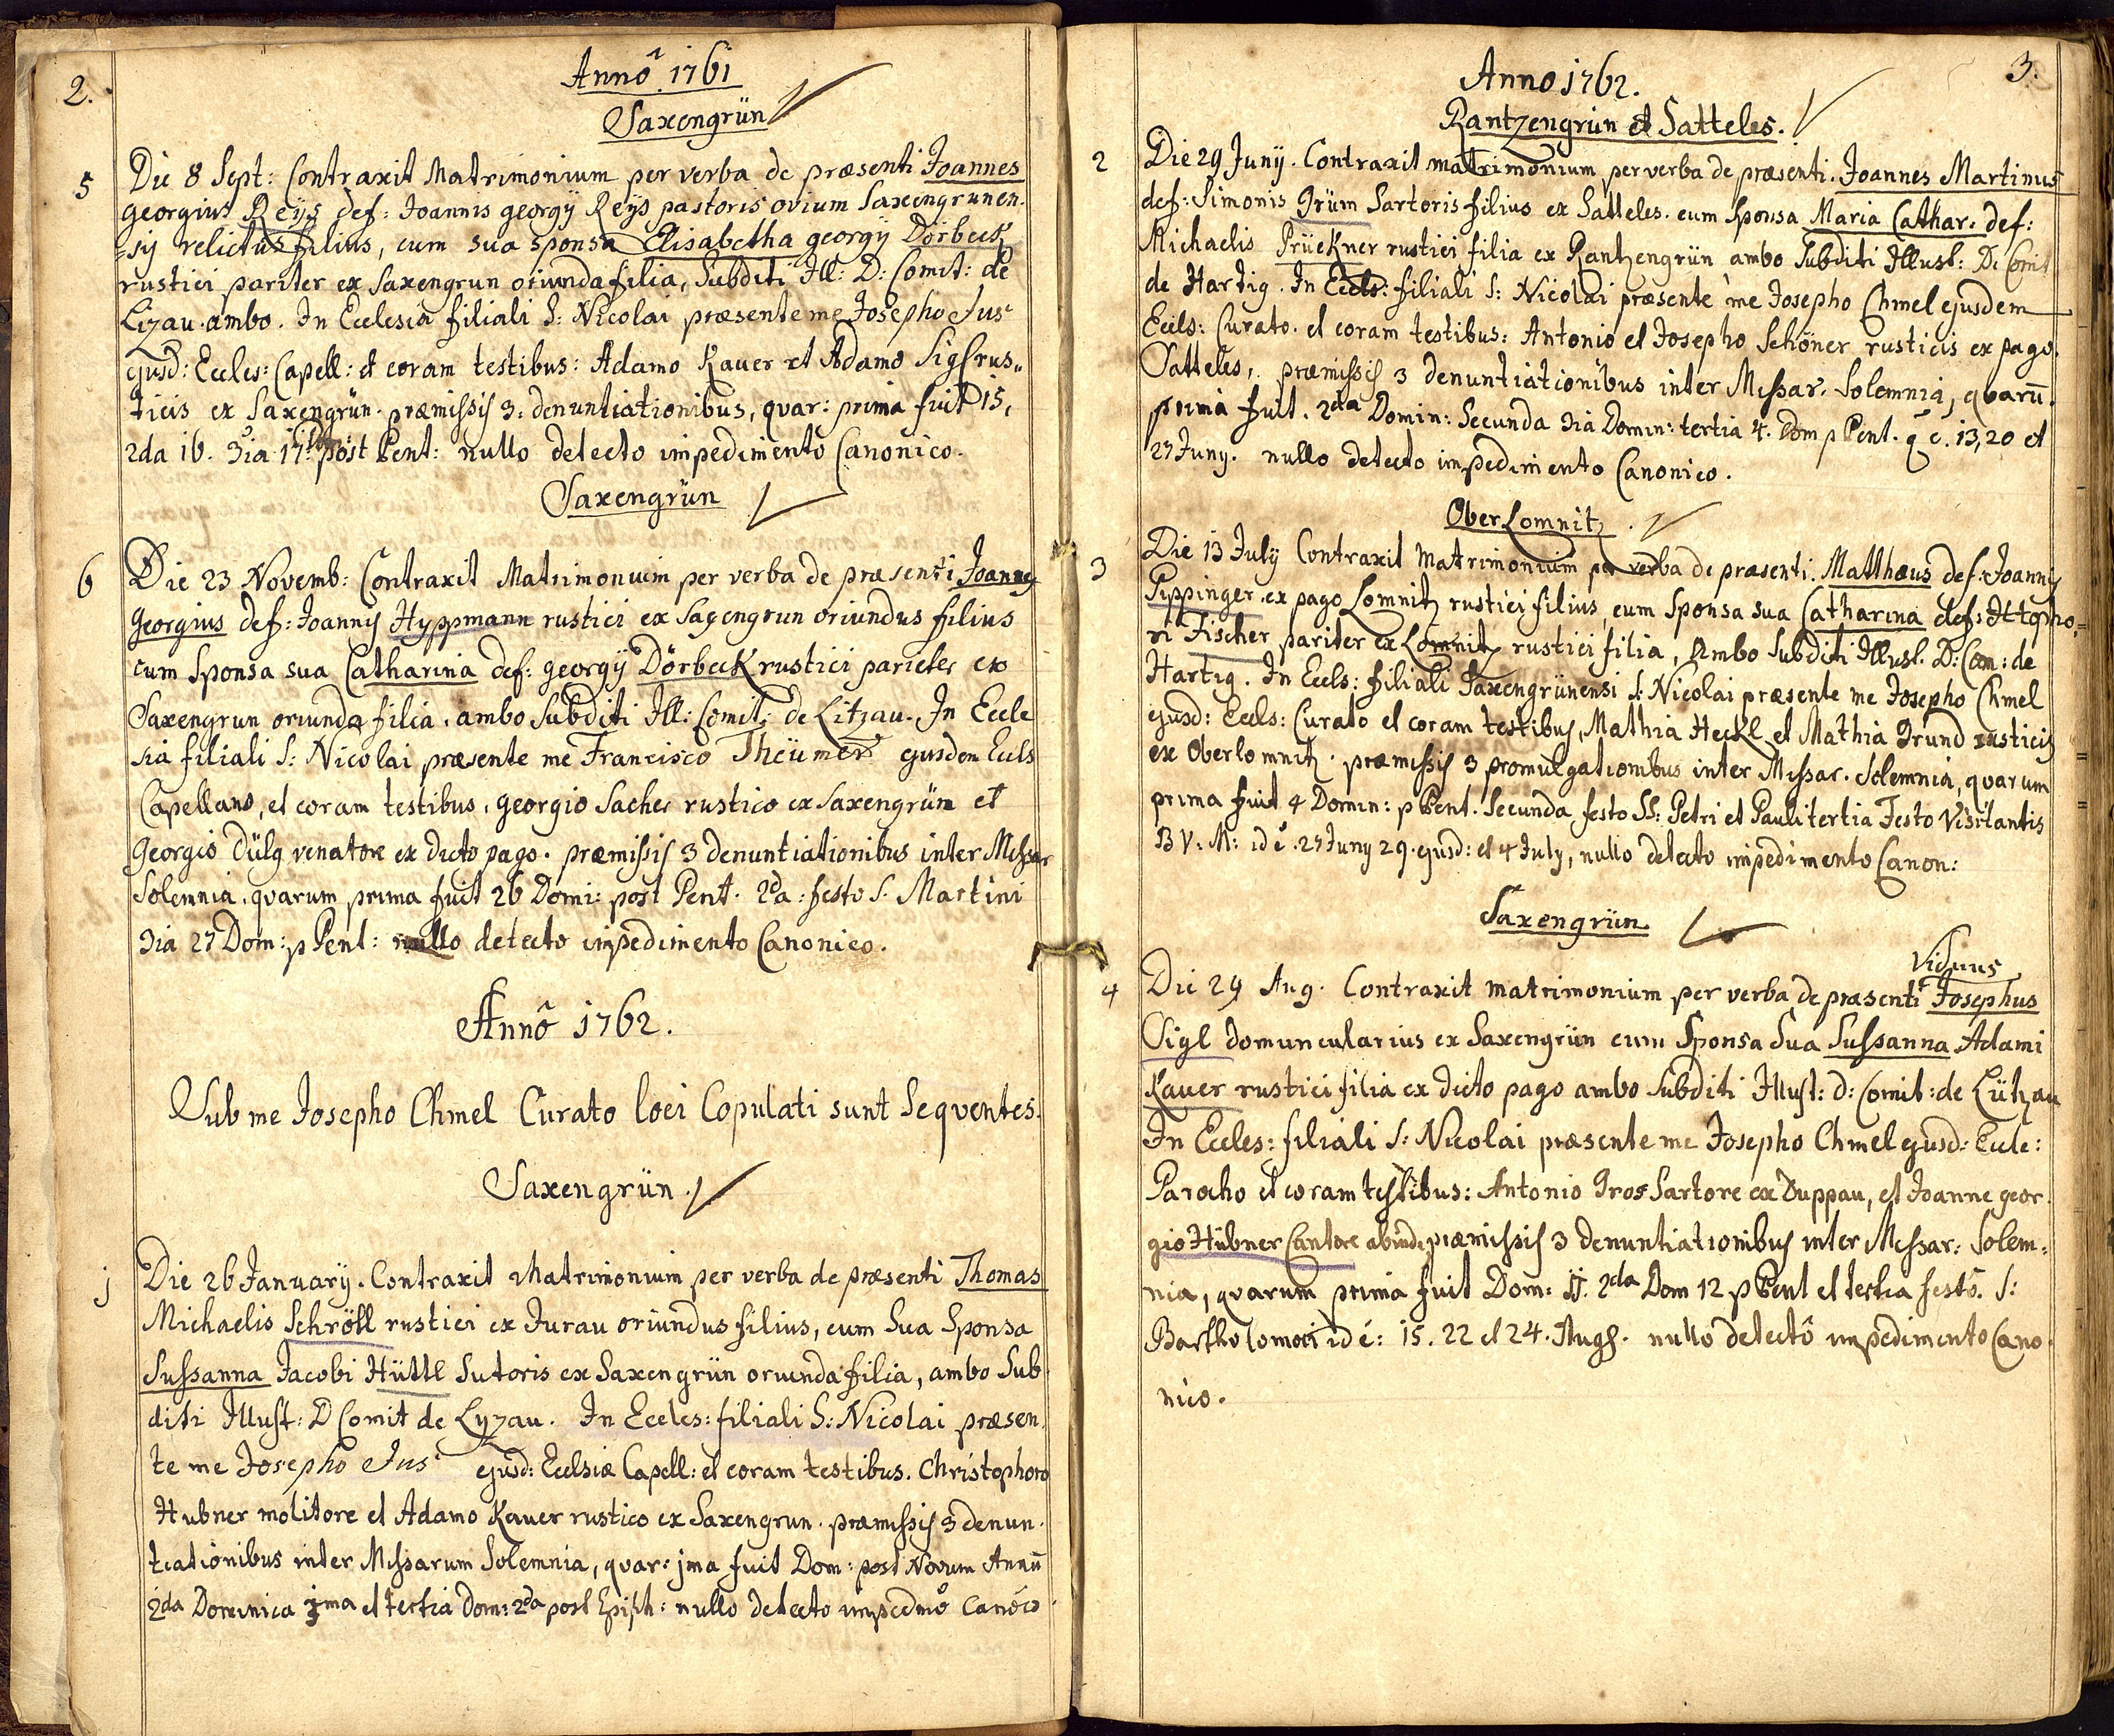 2.
Annô 1761
Saxengrün
5
Die 8 Sept: Contraxit Matrimonium per verba de præsenti Joannes
georgius Reÿs def: Joannis georgÿ Reÿs pastoris ovium Saxengrunen-
=sÿ relictus filius, cum sua sponsa Elisabetha georgÿ Dörbeck
rustici pariter ex Saxengrun oriunda filia, Subditi Ill: D: Comit: de
Lizau ambo. In Ecclesia filiali S: Nicolai præsente me Josepho Jus
ejusd: Eccles: Capell: et coram testibus: Adamo Kauer et Adamo Sigl rus„
ticis ex Saxengrün. præmissis 3. denuntiationibus, qvar: prima fuit 15,
2da 16. 3ia 17 post Pent: nullo detecto impedimento Canonico.
Saxengrün
6
Die 23 Novemb: Contraxit Matrimonium per verba de præsenti Joannes
Georgius def: Joannis Hyppmann rustici ex Saxengrun oriundus filius
cum Sponsa sua Catharina def: georgÿ Dörbeck rustici pariter ex
Saxengrun oriunda filia. ambo Subditi Ill: Comit: de Litzau. In Eccle
sia filiali S: Nicolai præsente me Francisco Theümer ejusdem Ecls
Capellano, et coram testibus, georgio Sacher rustico ex Saxengrün et
Georgio Dülg venatore ex dicto pago. præmissis 3 denuntiationibus inter Missar
Solemnia, qvarum prima fuit 26 Domi: post Pent. 2da: festo S. Martini
3ia 27 Dom: p Pent: nullo detecto impedimento Canonico.
Annô 1762.
Sub me Josepho Chmel Curato loci Copulati sunt Seqventes.
Saxengrün.
j
Die 26 Januarÿ. Contraxit Matrimonium per verba de præsenti Thomas
Michaelis Schröll rustici ex Jurau oriundus filius, cum Sua Sponsa
Sussanna Jacobi Hüttl Sutoris ex Saxengrün oriunda filia, ambo Sub
diti Illust: D Comit de Lyzau. In Eccles: filiali S: Nicolai præsen
te me Josepho Jus ejusd: Eclsiæ Capell: et coram testibus. Christophoro
Hubner molitore et Adamo Kauer rustico ex Saxengrun. præmissis 3 denun.
tiationibus inter Missarum Solemnia, qvar: jma fuit Dom: post Novum Annū
2da Dominica jma et tertia dom: 2da post Epiph: nullo detecto impedmo Canoco
3.
Anno 1762.
Rantzengrün et Satteles.
2
Die 29 Junÿ. Contraxit matrimonium per verba de præsenti. Joannes Martinus
def: Simonis Grüm Sartoris filius ex Satteles. cum Sponsa Maria Cathar. def:
Michaelis Prückner rustici filia ex Rantzengrün ambo Subditi Illust: D: Comit
de Hartig. In Eccls: filiali S: Nicolai præsente me Josepho Chmel ejusdem
Eccls: Curato. et coram testibus: Antonio et Josepho Schöner rusticis ex pago
Satteles, præmissis 3 denuntiationibus inter Missar. Solemnia, qvarū.
prima fuit. 2da Domin: Secunda 3ia Domin: tertia 4. Dom p Pent. q̄ ē. 13, 20 et
27 Juny. nullo detecto impedimento Canonico.
Ober Lomnitz.
3
Die 13 July Contraxit Matrimonium per verba de præsenti. Matthæus def: Joannis
Pippinger ex pago Lomnitz rustici filius, cum Sponsa sua Catharina def:
Fischer pariter ex Lomnitz rustici filia, Ambo Subditi Illust. D: Com: de
Hartig. In Eccls: filiali Saxengrünensi S: Nicolai præsente me Josepho Chmel
ejusd: Eccls: Curato et coram testibus, Mathia Heckl et Mathia Grund rusticis
ex Oberlomnitz. præmissis 3 promulgationibus inter Missar. Solemnia, qvarum
prima fuit 4 Domin: p Pent. Secunda festo SS: Petri et Pauli tertia Festo Visitantis
B V: M: id ē. 27 Juny 29. ejusd: et 4 July, nullo detecto impedimento Canon:
Saxengrün.
4
Viduus
Die 29 Aug. Contraxit matrimonium per verba de præsenti Josephus
Sigl domuncularius ex Saxengrün cum Sponsa Sua Sussanna Adami
Kauer rustici filia ex dicto pago ambo Subditi Illust: d: Comit: de Lützau
In Eccles: filiali S: Nicolai præsente me Josepho Chmel ejusd: Eccle:
Parocho et coram testibus: Antonio Gros Sartore ex Duppau, et Joanne geor
gio Hübner Cantore abinde præmissis 3 denuntiationibus inter Missar: Solem=
nia, qvarum prima fuit Dom: jj. 2da Dom 12 p Pent et tertia festo. S:
Bartholomoei id é: 15. 22 et 24. Aug. nullo detectô impedimento Cano
nico.